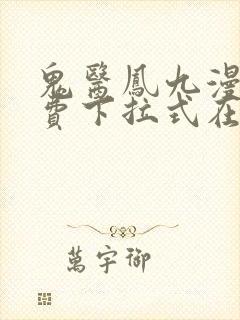 鬼醫鳳九漫
費下拉式在
萬宇御